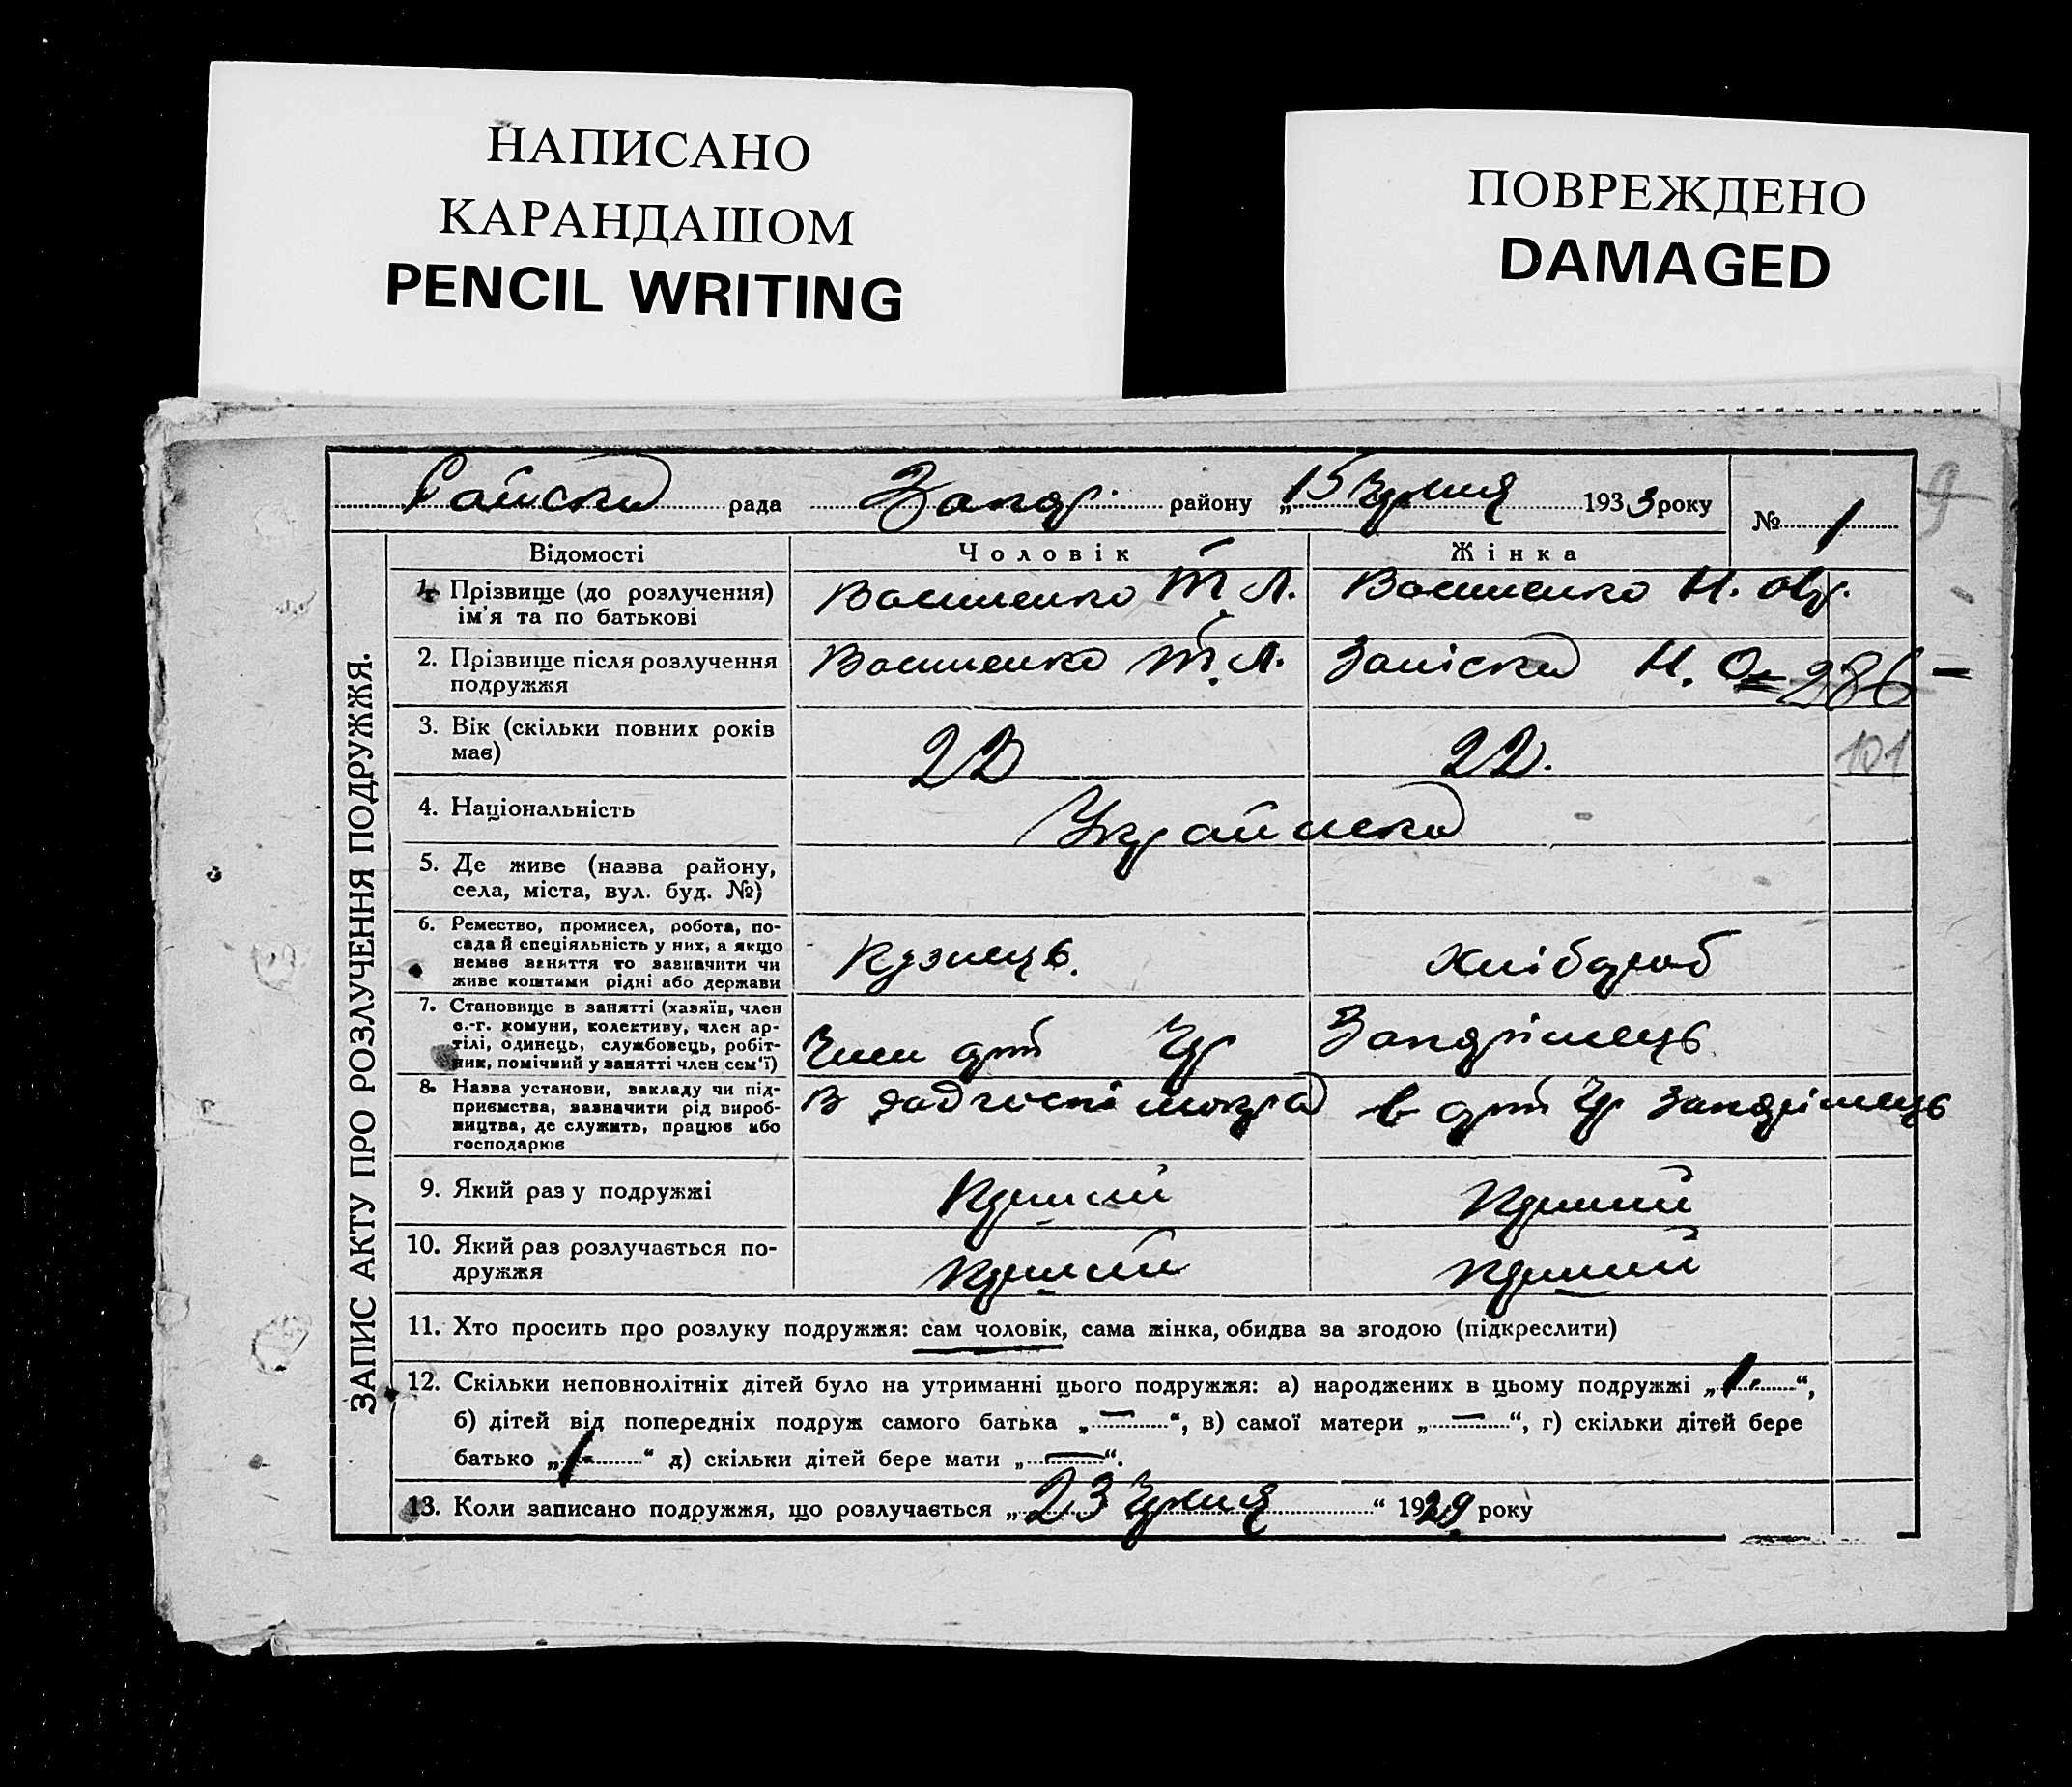 НАПИСАНО
КАРАНДАШОМ
PENCIL WRITING
ПОВРЕЖДЕНО
DAMAGED
рада району „15 Червня 1933 року
№ 1
ЗАПИС АКТУ ПРО РОЗЛУЧЕННЯ ПОДРУЖЖЯ.
Відомості Чоловік Жінка
1. Прізвище (до розлучення)
ім'я та по батькові
Т. Л. Н.
2. Прізвище після розлучення
подружжя
Т. Л. Н. 286
3. Вік (скільки повних років
має)
22 22. 101
4. Національність
5. Де живе (назва району,
села, міста, вул. буд. №)
6. Ремество, промисел, робота, по-
сада й спеціяльність у них, а якщо
немає заняття то зазначити чи
живе коштами рідні або держави
Кузнець. Хлібороб
7. Становище в занятті (хазяїн, член
с.-г. комуни, колективу, член ар-
тілі, одинець, службовець, робіт-
ник, помічний у занятті член сем'ї)
Член арт
8. Назва установи, закладу чи під-
приємства, зазначити рід вироб-
ництва, де служить, працює або
господарює
В в арт
9. Який раз у подружжі
10. Який раз розлучається по-
дружжя
11. Хто просить про розлуку подружжя: сам чоловік, сама жінка, обидва за згодою (підкреслити)
12. Скільки неповнолітніх дітей було на утриманні цього подружжя: а) народжених в цьому подружжі „1.“,
б) дітей від попередніх подруж самого батька „—“, в) самої матери „—“, г) скільки дітей бере
батько „1.“ д) скільки дітей бере мати „—“.
13. Коли записано подружжя, що розлучається „23 Червня“ 1929 року